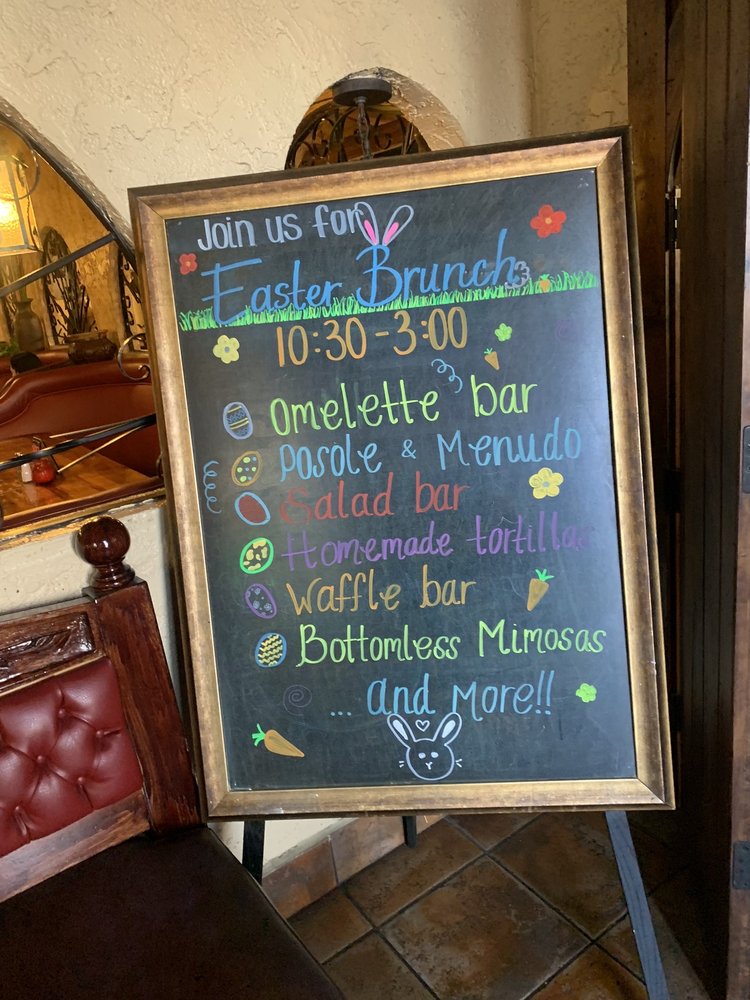 Join us for
Easter Brunch
10:30-3:00
Omelette bar
Posole & Menudo
Salad bar
Homemade tortillas
Waffle bar
Bottomless Mimosas
... and More!!